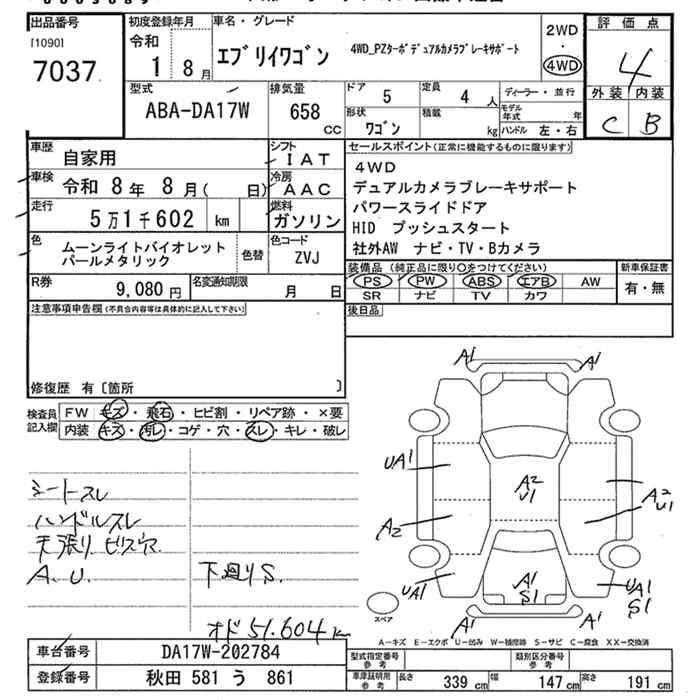 出品番号
[1090]
7037
初度登録年月
令和
1 8月
車名・グレード
エブリイワゴン
4WD_PZターボデュアルカメラブレーキサポート
2WD
・
4WD
評価点
4
外装 内装
C B
型式
ABA-DA17W
排気量
658
CC
ドア
5
定員
4 人
形状
ワゴン
積載
kg
ディーラー・並行
モデル年式 年
ハンドル 左・右
車歴
自家用
シフト
IAT
車検
令和 8年 8月( 日)
冷房
AAC
走行
5万1千602 km
燃料
ガソリン
色
ムーンライトバイオレット
パールメタリック
色替
色コード
ZVJ
R券
9,080 円
名変通知期限
月 日
セールスポイント(正常に機能するものに限ります)
4WD
デュアルカメラブレーキサポート
パワースライドドア
HID プッシュスタート
社外AW ナビ・TV・Bカメラ
装備品 (純正品に限り○をつけてください)
PS PW ABS エアB AW
SR ナビ TV カワ
新車保証書
有・無
後日品
注意事項申告欄(不具合内容等は具体的に記入して下さい)
修復歴 有〔箇所 〕
検査員
記入欄
FW キズ・飛石・ヒビ割・リペア跡・×要
内装 キズ・汚レ・コゲ・穴・スレ・キレ・破レ
シートスレ
ハンドルスレ
天張り ビズマ
A.U.
下廻りS.
オド51.604km
A1 A1
UA1
A2
U1
A2
U1
A2
UA1
A1
S1
UA1
S1
A1 A1
スペア
A-キズ E-エクボ U-凹み W-補修跡 S-サビ C-腐食 XX-交換済
車台番号
DA17W-202784
登録番号
秋田 581 う 861
型式指定番号
参考
類別区分番号
参考
車庫証明用
参考
長さ 339 cm 幅 147 cm 高さ 191 cm